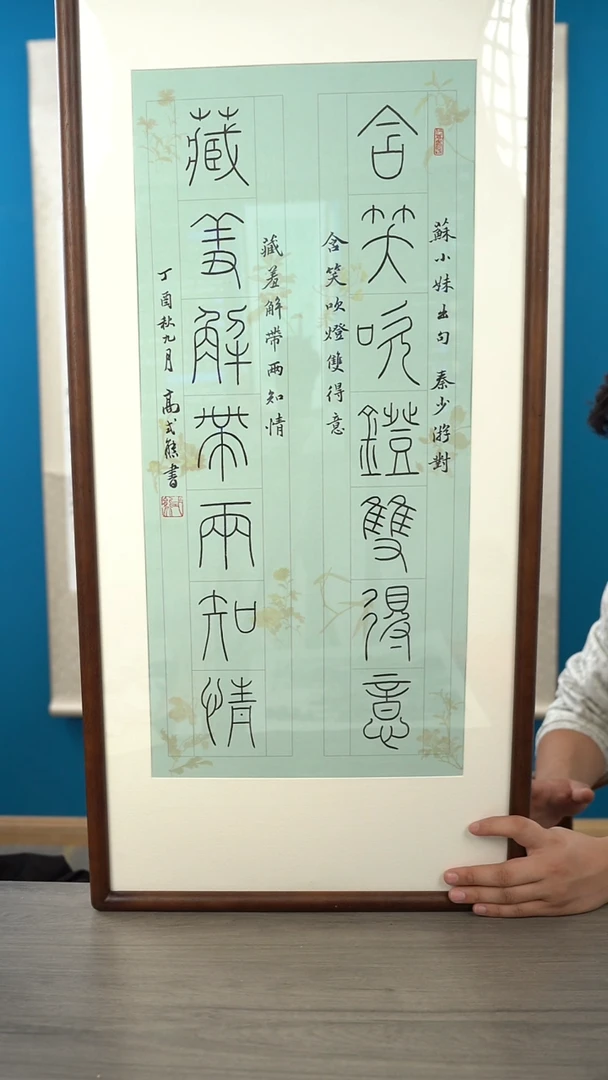 蘇小妹出句 秦少游對
含笑吹鐙雙得意
含笑吹燈雙得意
藏羞解帶兩知情
藏羞解帶兩知情
丁酉秋九月 高式熊書